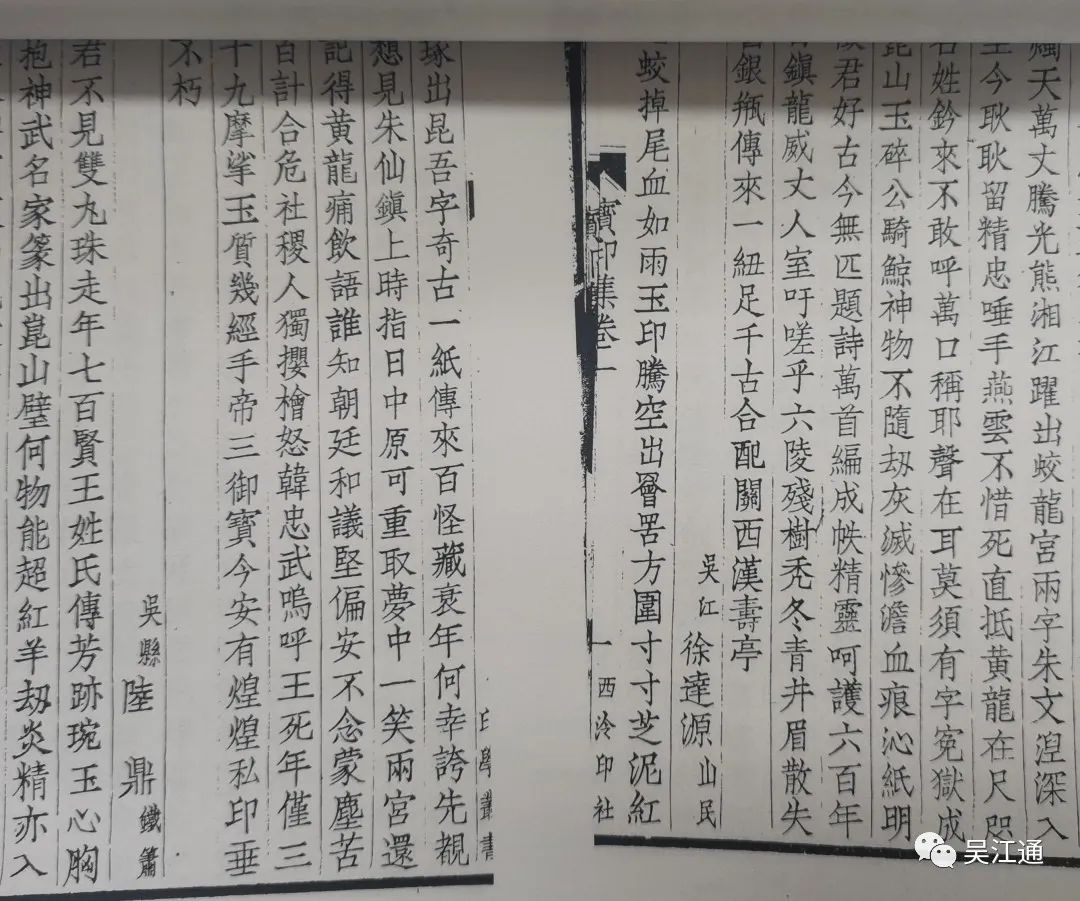 天萬丈騰光熊湘江躍出蛟龍宮兩字朱文湼深入
至今耿耿留精忠唾手燕雲不惜死直抵黃龍在尺咫
名姓鈐來不敢呼萬口稱耶聲在耳莫須有字寃獄成
崑山玉碎公騎鯨神物不隨刼灰滅慘澹血痕沁紙明
君好古今無匹題詩萬首編成帙精靈呵護六百年
鎮龍威丈人室吁嗟乎六陵殘樹禿冬青井眉散失
銀瓶傳來一紐足千古合配關西漢壽亭
吳江徐達源山民
蛟掉尾血如雨玉印騰空出罾罟方圍寸寸芝泥紅
寶印集卷一 一 西泠印社
印學叢書
琢出昆吾字奇古一紙傳來百怪藏衰年何幸誇先覩
想見朱仙鎮上時指日中原可重取夢中一笑兩宮還
記得黃龍痛飲語誰知朝廷和議堅偏安不念蒙塵苦
百計合危社稷人獨攖檜怒韓忠武嗚呼王死年僅三
十九摩挲玉質幾經手帝三御寶今安有煌煌私印垂
不朽
吳縣陸鼎鐵簫
君不見雙丸珠走年七百賢王姓氏傳芳跡琬玉心胸
抱神武名家篆出崑山璧何物能超紅羊刼炎精亦入
吴江通